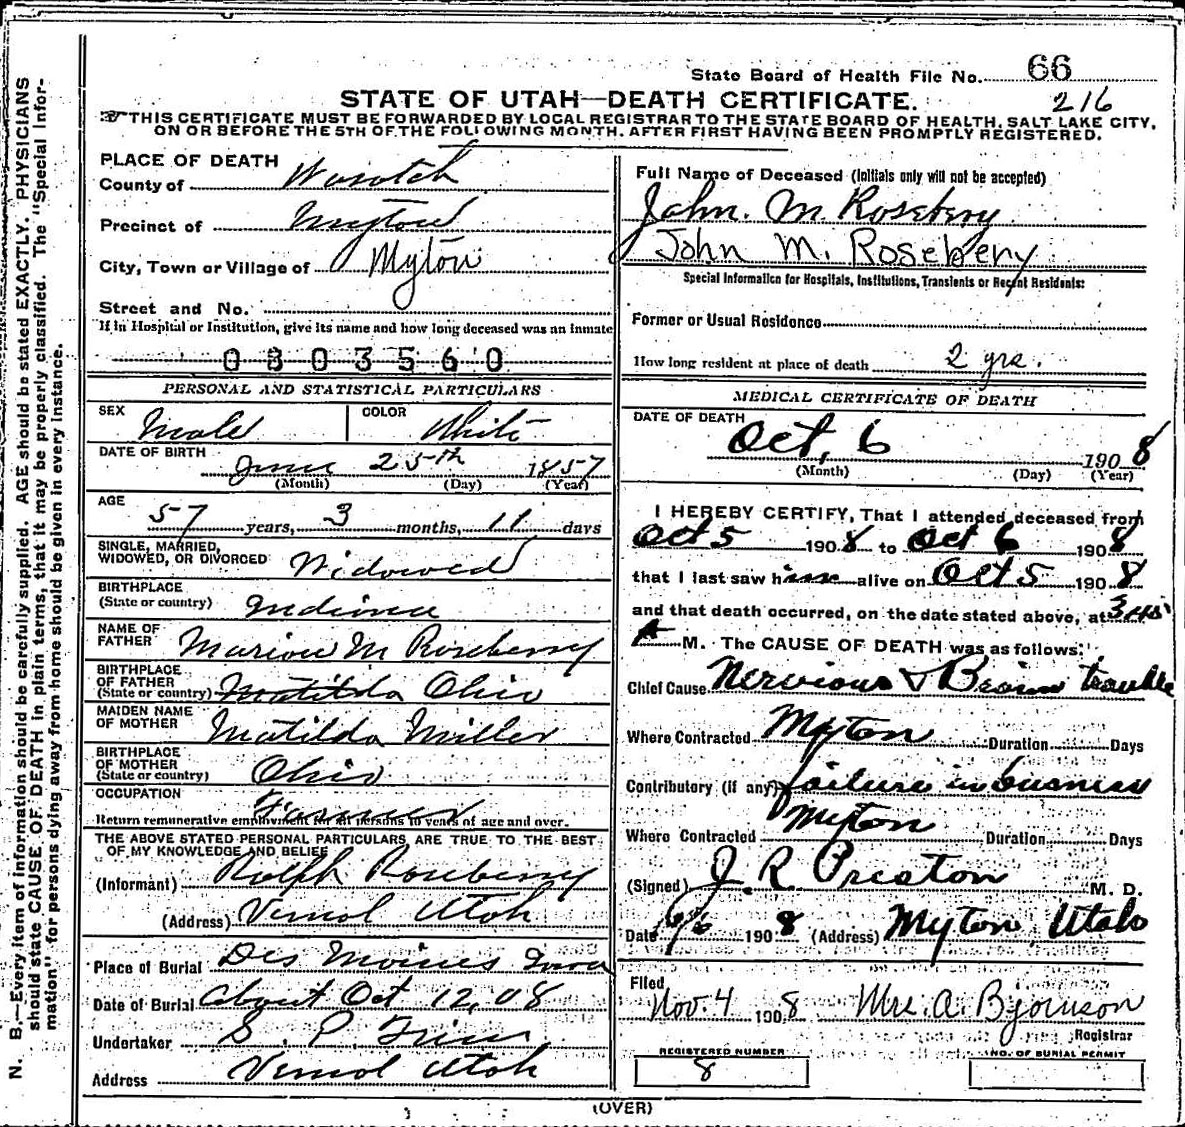 State Board of Health File No. 66
216
STATE OF UTAH—DEATH CERTIFICATE.
THIS CERTIFICATE MUST BE FORWARDED BY LOCAL REGISTRAR TO THE STATE BOARD OF HEALTH, SALT LAKE CITY,
ON OR BEFORE THE 5TH OF THE FOLLOWING MONTH, AFTER FIRST HAVING BEEN PROMPTLY REGISTERED.
PLACE OF DEATH
County of Wasatch
Precinct of Myton
City, Town or Village of Myton
Street and No.
If in Hospital or Institution, give its name and how long deceased was an inmate
0303560
PERSONAL AND STATISTICAL PARTICULARS
SEX Male COLOR White
DATE OF BIRTH
June 25th 1857
(Month) (Day) (Year)
AGE
57 years, 3 months, 11 days
SINGLE, MARRIED,
WIDOWED, OR DIVORCED Widowed
BIRTHPLACE
(State or country) Indiana
NAME OF
FATHER Marion M Roseberry
BIRTHPLACE
OF FATHER
(State or country) Matilda Ohio
MAIDEN NAME
OF MOTHER Matilda Miller
BIRTHPLACE
OF MOTHER
(State or country) Ohio
OCCUPATION
Farmer
Return remunerative employment for all persons 10 years of age and over.
THE ABOVE STATED PERSONAL PARTICULARS ARE TRUE TO THE BEST
OF MY KNOWLEDGE AND BELIEF
(Informant) Rolph Roseberry
(Address) Vernal Utah
Place of Burial Des Moines Iowa
Date of Burial About Oct 12, 08
Undertaker S. P.
Address Vernal Utah
Full Name of Deceased (Initials only will not be accepted)
John. M Rosebery
John M. Rosebery
Special Information for Hospitals, Institutions, Transients or Recent Residents:
Former or Usual Residence
How long resident at place of death 2 yrs.
MEDICAL CERTIFICATE OF DEATH
DATE OF DEATH
Oct, 6 1908
(Month) (Day) (Year)
I HEREBY CERTIFY, That I attended deceased from
Oct 5 1908 to Oct 6 1908
that I last saw him alive on Oct 5 1908
and that death occurred, on the date stated above, at 3:45
A M. The CAUSE OF DEATH was as follows:
Chief Cause Nervious & Brain trouble
Where Contracted Myton Duration Days
Contributory (if any) failure in business
Where Contracted Myton Duration Days
(Signed) J. R. Preston M. D.
Date 1908 (Address) Myton, Utah
Filed
Nov. 4 1908 Mrs. A. Bjornson
Registrar
REGISTERED NUMBER
8
NO. OF BURIAL PERMIT
(OVER)
N. B.—Every item of information should be carefully supplied. AGE should be stated EXACTLY. PHYSICIANS
should state CAUSE OF DEATH in plain terms, that it may be properly classified. The "Special Infor-
mation" for persons dying away from home should be given in every instance.